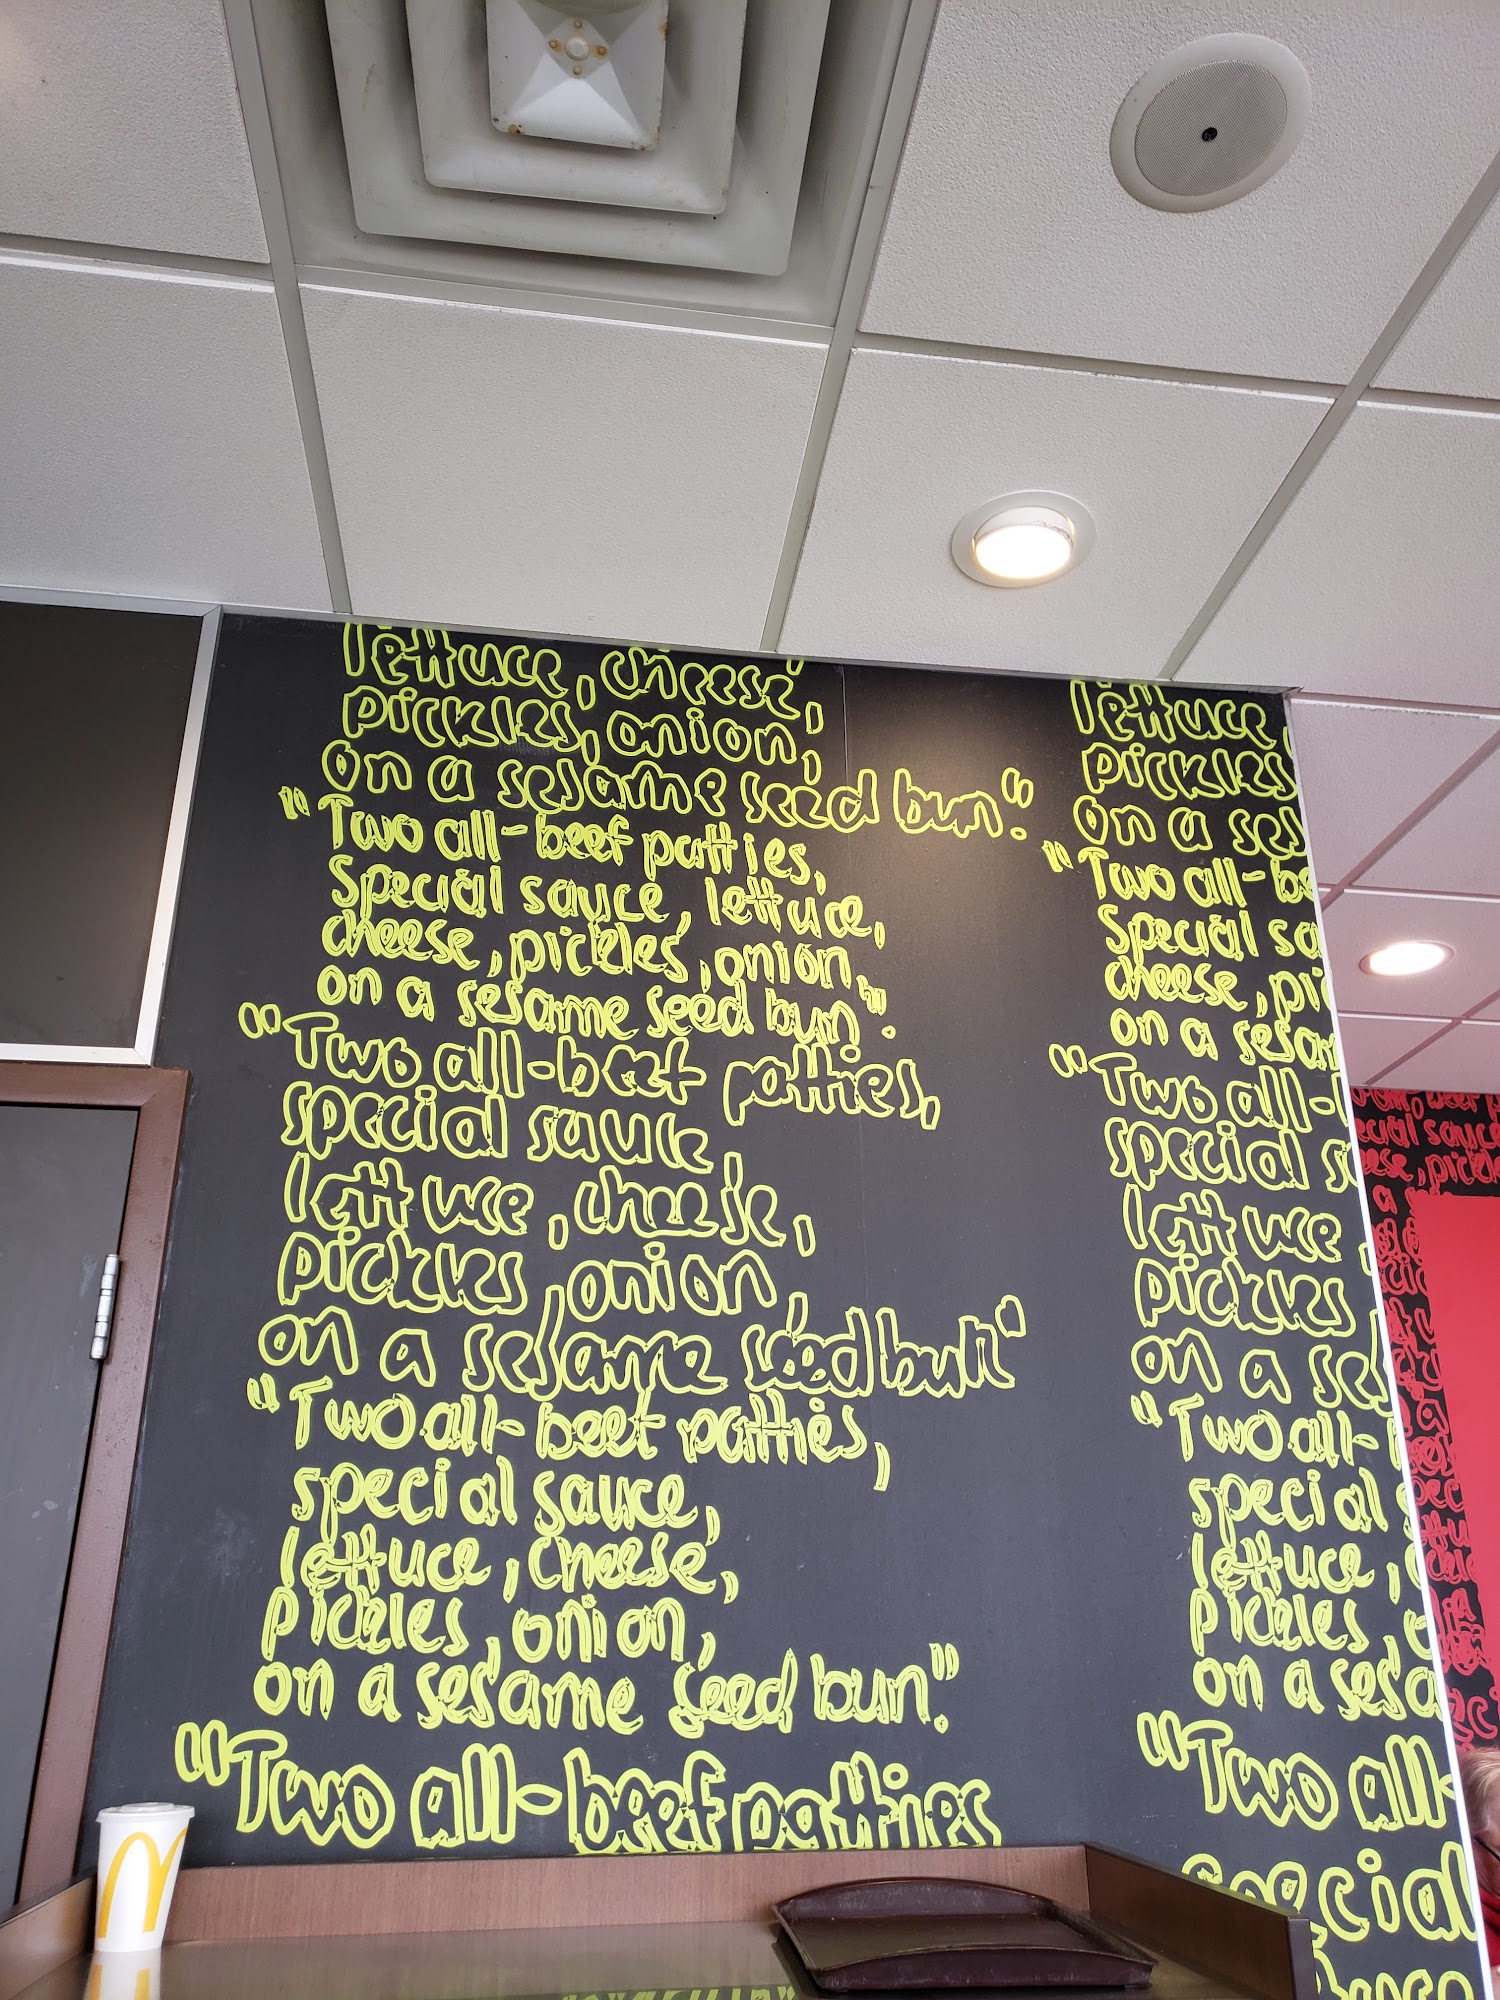 lettuce, cheese,
pickles, onion,
on a sesame seed bun."
"Two all-beef patties,
Special sauce, lettuce,
cheese, pickles, onion,
on a sesame seed bun".
"Two all-beef patties,
special sauce,
lettuce, cheese,
pickles, onion,
on a sesame seed bun"
"Two all-beef patties,
special sauce,
lettuce, cheese,
pickles, onion,
on a sesame seed bun".
"Two all-beef patties
lettuce,
pickles
on a
"Two all-
Special
cheese,
on a
"Two all-
special
lettuce,
pickles,
on a
"Two all-
special
lettuce,
pickles,
on a
"Two all-
special
special sauce